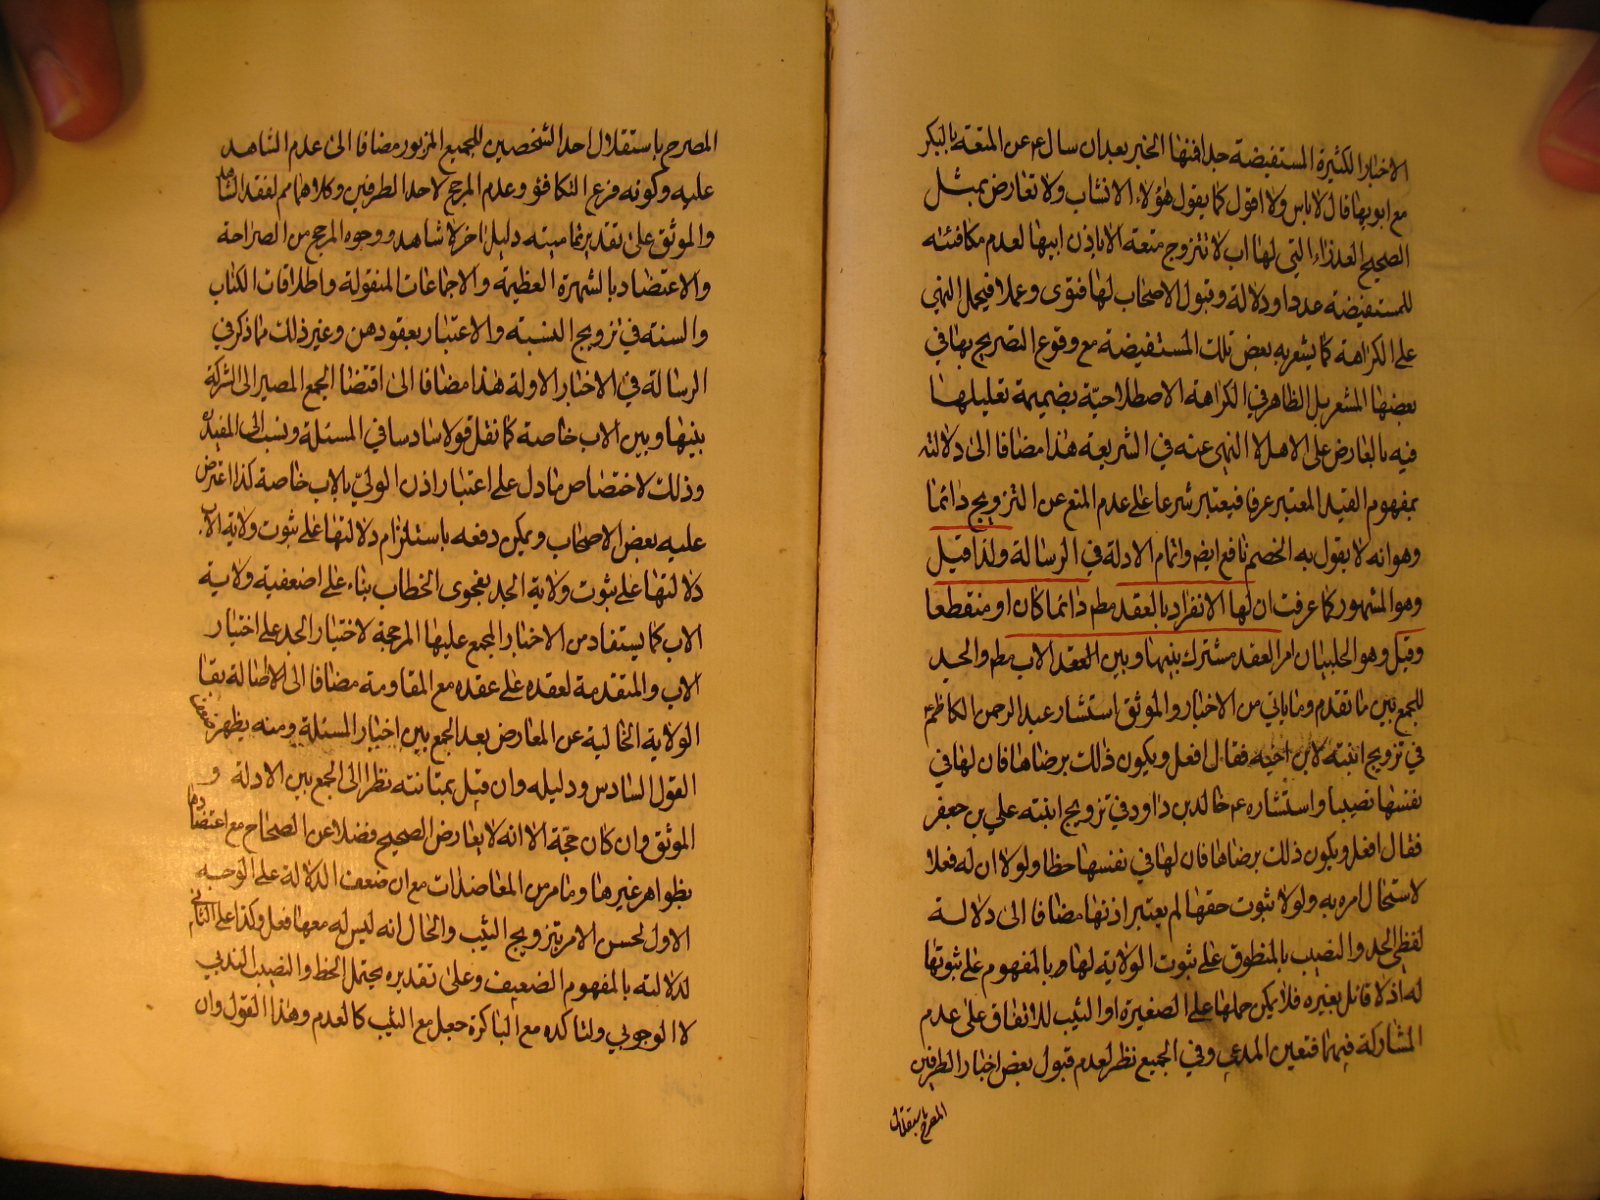 الاخبار الكثيرة المستفيضة جدا فمنها الخبر بعد ان سال ع عن المتعة بالبكر
مع ابويها قال لا باس ولا اقول كما يقول هؤلاء الانشاب ولا تعارض بمثل
الصحيح العذراء التي لها اب لا تتزوج متعة الا باذن ابيها لعدم مكافئته
للمستفيضة عددا ودلالة وقبول الاصحاب لها فتوى وعملا فيحمل النهي
على الكراهة كما يشعر به بعض تلك المستفيضة مع وقوع التصريح بها في
بعضها المشعر بل الظاهر في الكراهة الاصطلاحيّة بضميمة تعليلها
فيه بالعار على الاهل لا النهي عنه في الشريعة هذا مضافا الى دلالته
بمفهوم القيد المعتبر عرفا فيعتبر شرعا على عدم المنع عن التزويج دائما
وهو انه لا يقول به الخصم نافع ايض واتمام الادلة في الرسالة ولذا قيل
وهو المشهور كما عرفت ان لها الانفراد بالعقد مطم دائما كان او منقطعا
وقيل وهو الحلبيان امر العقد مشترك بينها وبين العقد الاب مطم والجد
للجمع بين ما تقدم وما ياتي من الاخبار والموثق استشار عبد الرحمن الكاظم ع
في تزويج ابنته لابن اخيه فقال افعل ويكون ذلك برضاها فان لها في
نفسها نصيبا واستشاره ع خالد بن داود في تزويج ابنته علي بن جعفر
فقال افعل ويكون ذلك برضاها فان لها في نفسها حظا ولولا ان له فعلا
لاستحال امره به ولولا ثبوت حقها لم يعتبر اذنها مضافا الى دلالة
لفظي الحد والنصيب بالمنطوق على ثبوت الولاية لها وبالمفهوم على ثبوتها
له اذ لا قائل بغيره فلا يمكن حملها على الصغيرة او الثيب للاتفاق على عدم
المشاركة فيهما فتعين المدعى وفي الجميع نظر لعدم قبول بعض اخبار الطرفين
المصرح باستقلال
المصرح باستقلال احد الشخصين للجميع المزبور مضافا الى عدم الشاهد
عليه وكونه فرع التكافؤ وعدم المرجح لاحد الطرفين وكلاهما مم لفقد الشاهد
والموثق على تقدير تماميته دليل اخر لا شاهد ووجوه المرجح من الصراحة
والاعتضاد بالشهرة العظيمة والاجماعات المنقولة واطلاقات الكتاب
والسنة في تزويج النسبة والاعتبار بعقودهن وغير ذلك مما ذكر في
الرسالة في الاخبار الاولة هذا مضافا الى اقتضا الجمع المصير الى الشركة
بينها وبين الاب خاصة كما نقل قولا سادسا في المسئلة ونسب الى المفيد ره
وذلك لاختصاص ما دل على اعتبار اذن الوليّ بالاب خاصة كذا اعترض
عليه بعض الاصحاب ويمكن دفعه باستلزام دلالتها على ثبوت ولاية الاب
دلالتها على ثبوت ولاية الجد بفحوى الخطاب بناء على اضعفية ولاية
الاب كما يستفاد من الاخبار المجمع عليها المرجحة لاختيار الجد على اختيار
الاب والمتقدمة لعقده على عقده مع المقاومة مضافا الى الاصالة بقا
الولاية الخالية عن المعارض بعد الجمع بين اخبار المسئلة ومنه يظهر ضعف
القول السادس ودليله وان قيل بمتانته نظرا الى الجمع بين الادلة و
الموثق وان كان حجة الا انه لا يعارض الصحيح فضلا عن الصحاح مع اعتضادها
بظواهر غيرها وما مر من المعاضدات مع ان ضعف الدلالة على الوجه
الاول لحسن الامر بتزويج الثيب والحال انه ليس له معها فعل وكذا على الثاني
لدلالته بالمفهوم الضعيف وعلى تقديره يحتمل الحظ والنصيب الندبي
لا الوجوبي ولتاكده مع الباكرة جعل مع الثيب كالعدم وهذا القول وان